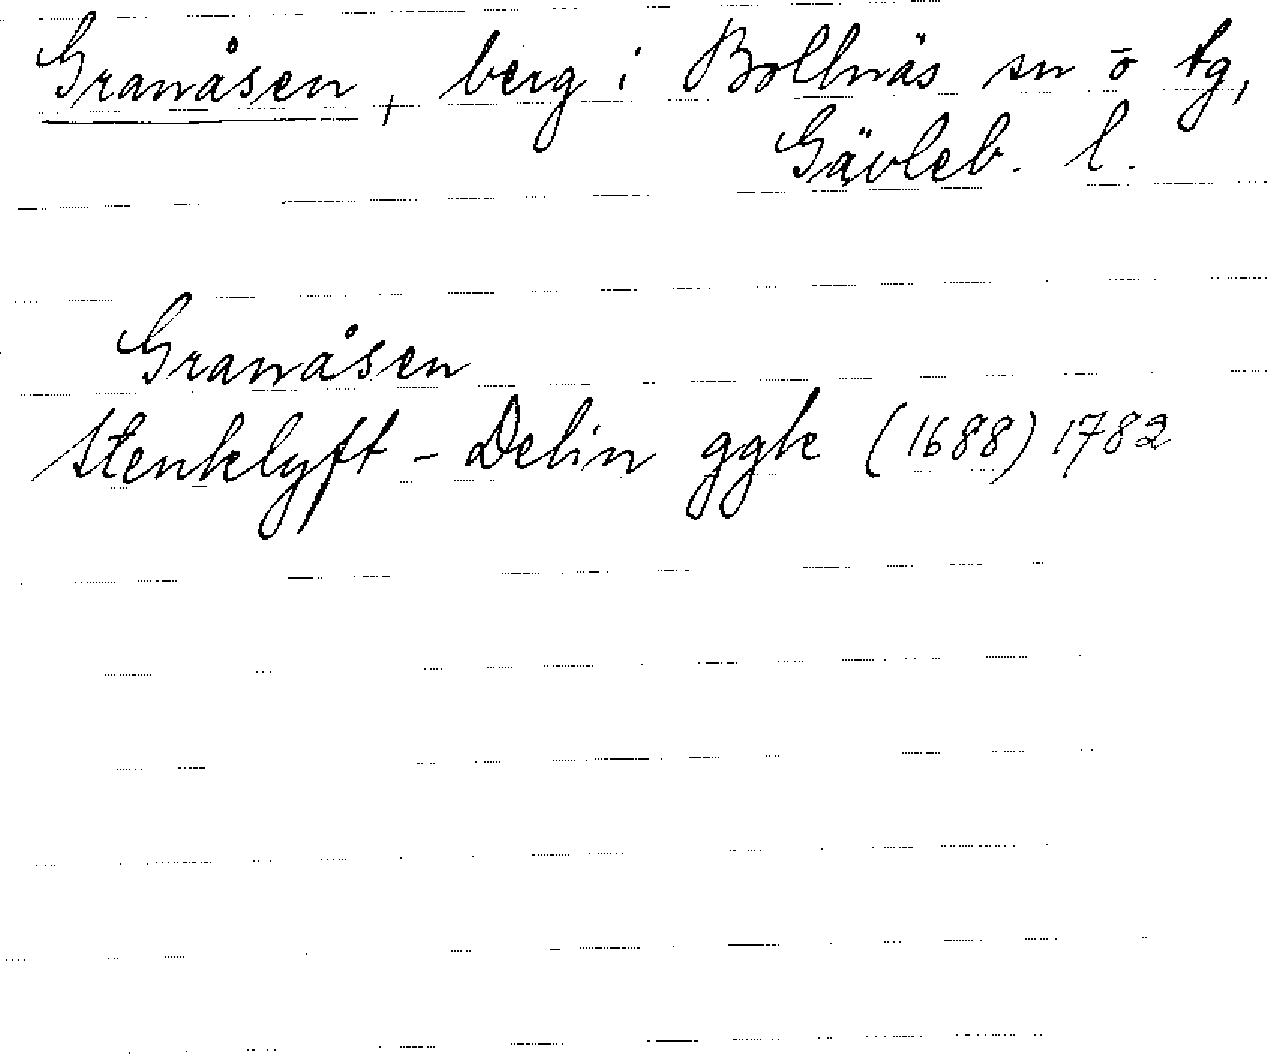 Granåsen, berg i Bollnäs sn o tg,
Gävleb. l.
Granåsen
Stenklyft - Delin ggk (1688) 1782